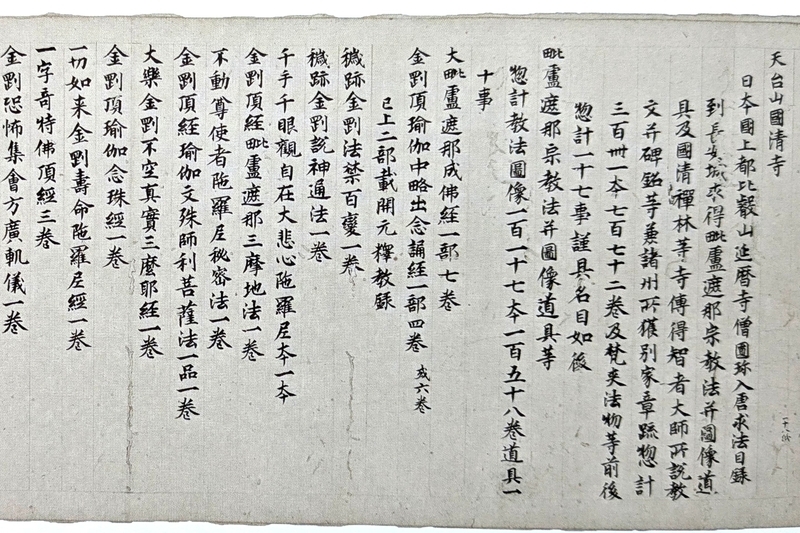 天台山國清寺
日本國上都比叡山延暦寺僧圓珎入唐求法目録
到長安城求得毗盧遮那宗教法并圖像道
具及國清禪林等寺傳得智者大師所説教
文并碑銘等兼諸州所獲別家章疏惣計
三百卌一本七百七十二卷及梵夾法物等前後
惣計一十七事謹具名目如後
毗盧遮那宗教法并圖像道具等
惣計教法圖像一百一十七本一百五十八卷道具一
十事
大毗盧遮那成佛經一部七卷
金剛頂瑜伽中略出念誦經一部四卷 或六卷
已上二部載開元釋教録
穢跡金剛法禁百變一卷
穢跡金剛説神通法一卷
千手千眼觀自在大悲心陁羅尼本一本
金剛頂經毗盧遮那三摩地法一卷
不動尊使者陁羅尼秘密法一卷
金剛頂經瑜伽文殊師利菩薩法一品一卷
大樂金剛不空真實三麼耶經一卷
金剛頂瑜伽念珠經一卷
一切如来金剛壽命陁羅尼經一卷
一字奇特佛頂經三卷
金剛恐怖集會方廣軌儀一卷